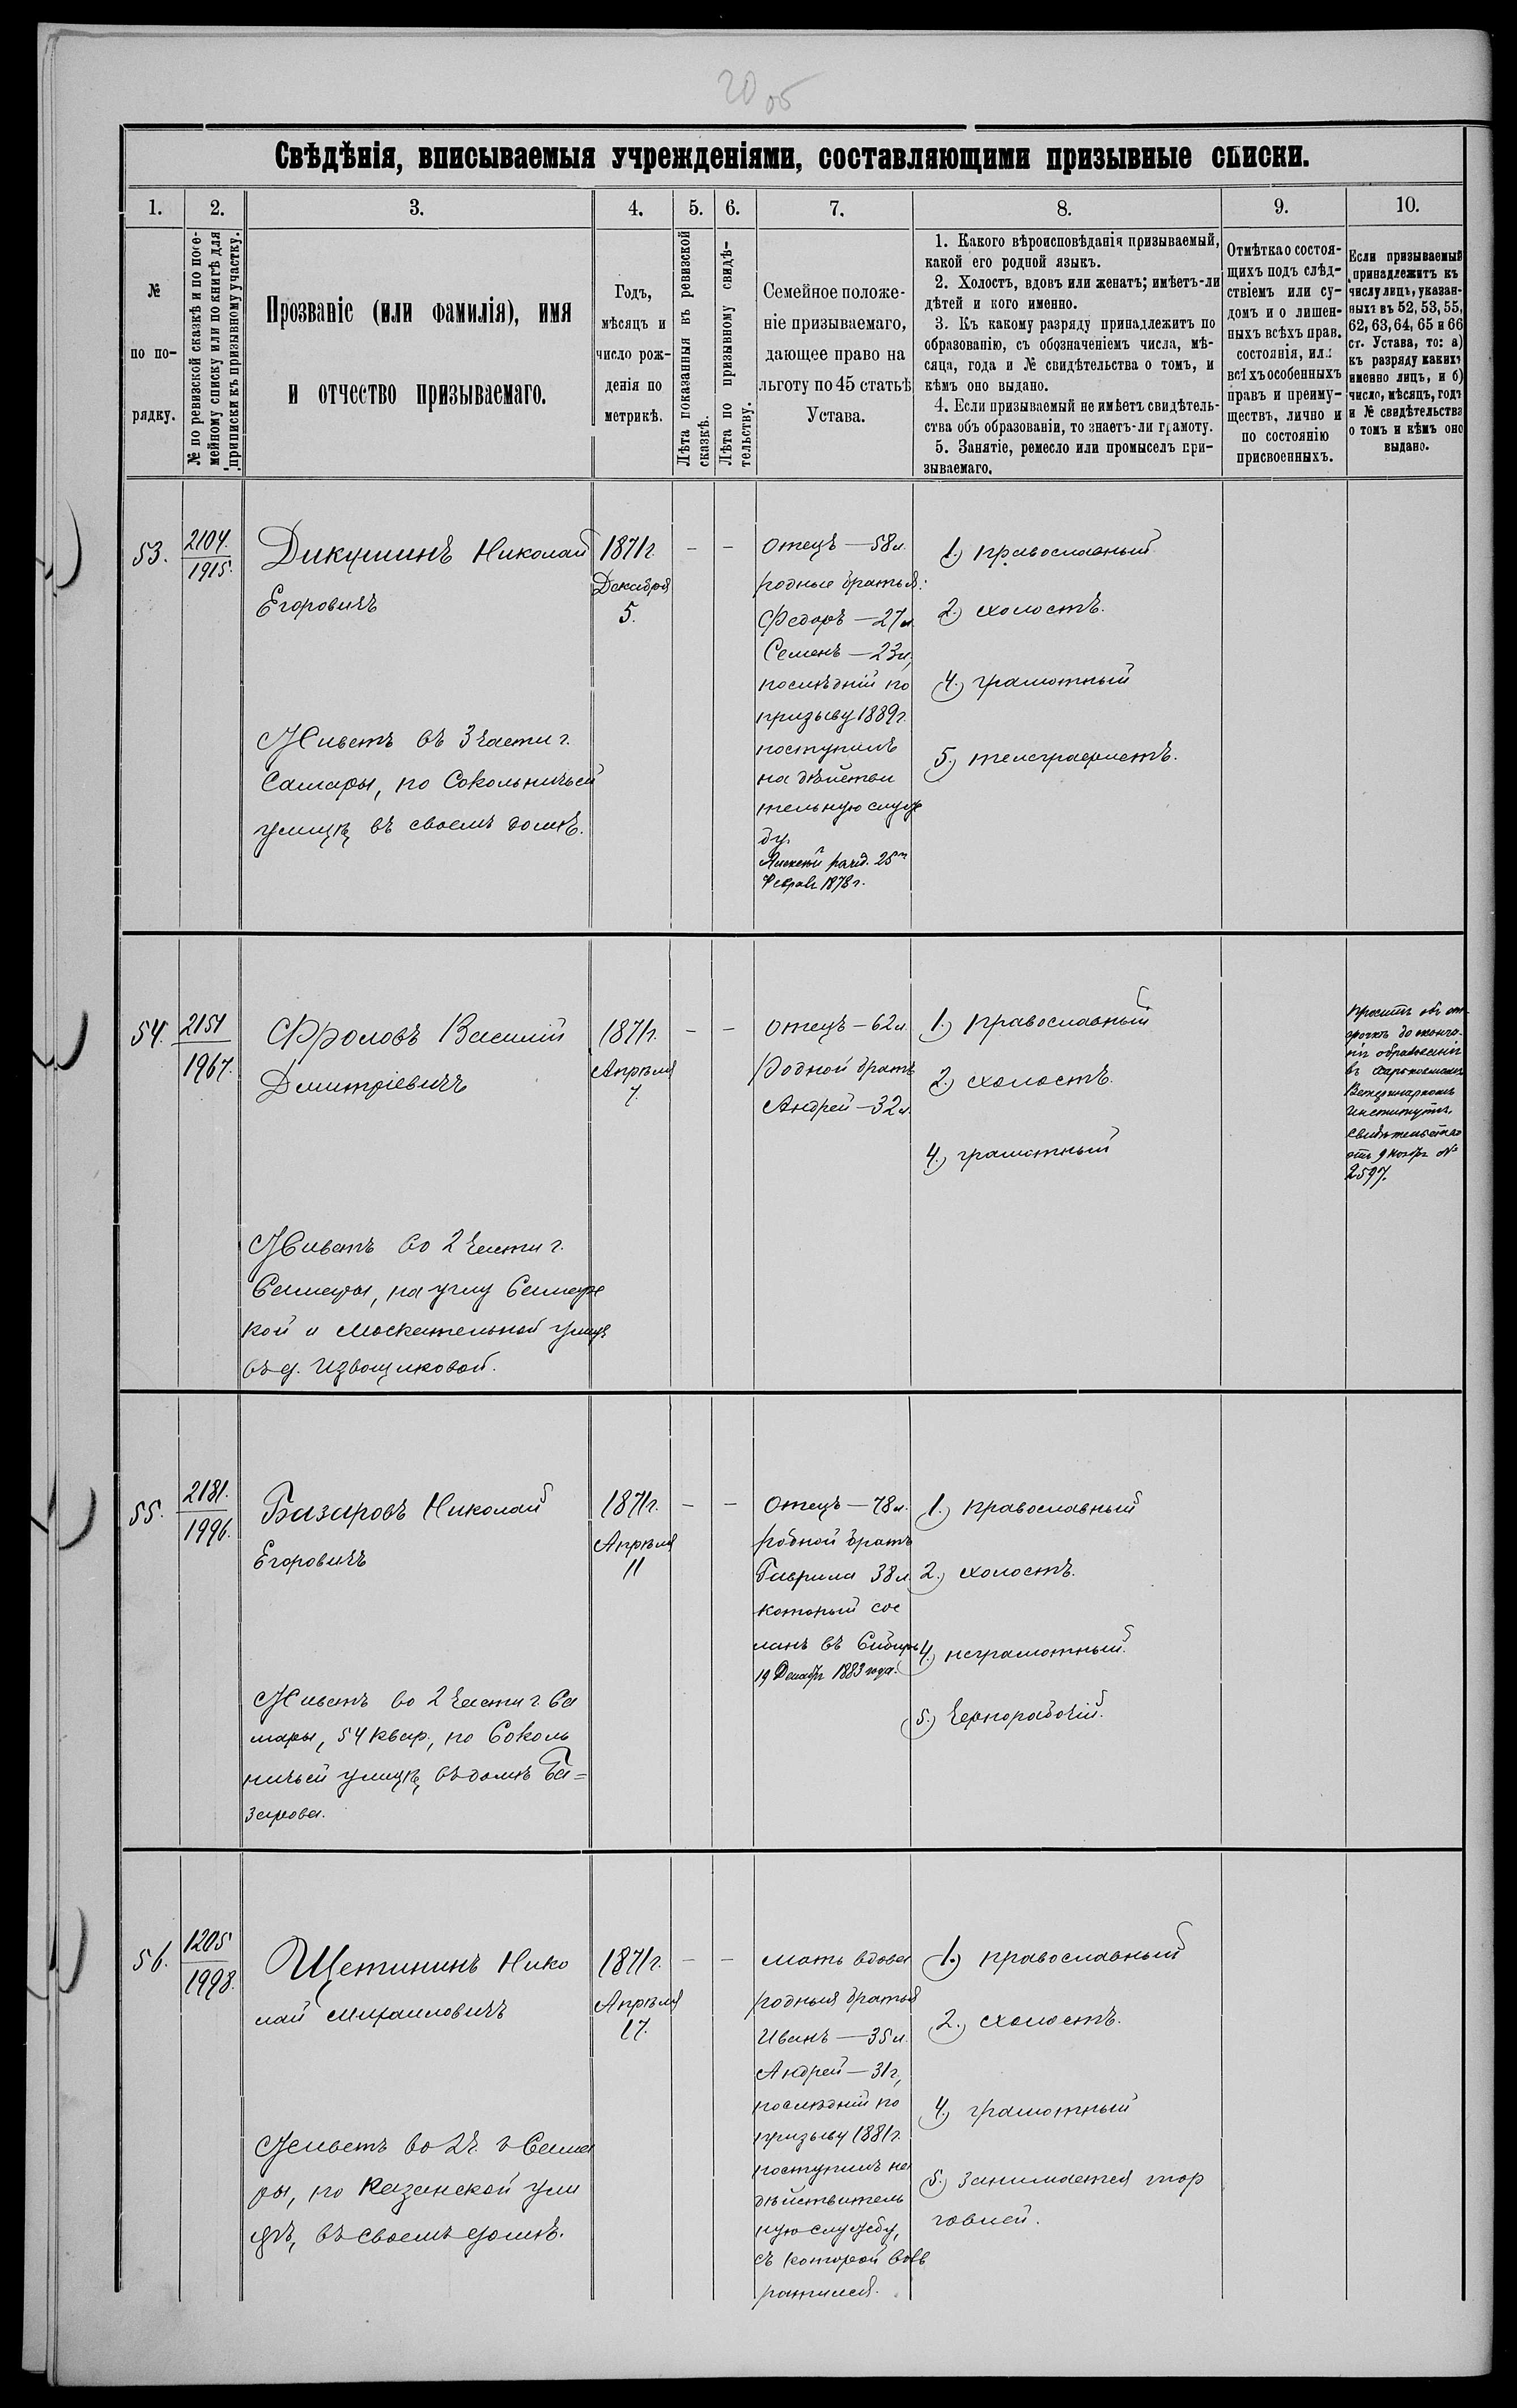 20 05
Свѣдѣнія, вписываемыя учрежденіями, составляющими призывные списки.
1.
2.
3.
4.
5.
6.
7.
8.
9.
10.
№
по по-
рядку.
№ по ревизской сказкѣ и по посе-
мейному списку или по книгѣ для
приписки къ призывному участку.
Прозваніе (или фамилія), имя
и отчество призываемаго.
Годъ,
мѣсяцъ и
число рож-
денія по
метрикѣ.
Лѣта показанныя въ ревизской
сказкѣ.
Лѣта по призывному свидѣ-
тельству.
Семейное положе-
ніе призываемаго,
дающее право на
льготу по 45 статьѣ
Устава.
1. Какого вѣроисповѣданія призываемый,
какой его родной языкъ.
2. Холостъ, вдовъ или женатъ; имѣетъ-ли
дѣтей и кого именно.
3. Къ какому разряду принадлежитъ по
образованію, съ обозначеніемъ числа, мѣ-
сяца, года и № свидѣтельства о томъ, и
кѣмъ оно выдано.
4. Если призываемый не имѣетъ свидѣтель-
ства объ образованіи, то знаетъ-ли грамоту.
5. Занятіе, ремесло или промыселъ при-
зываемаго.
Отмѣтка о состоя-
щихъ подъ слѣд-
ствіемъ или су-
домъ и о лишен-
ныхъ всѣхъ прав.
состоянія, ил:
всѣхъ особенныхъ
правъ и преиму-
ществъ, лично и
по состоянію
присвоенныхъ.
Если призываемый
принадлежитъ къ
числу лицъ, указан-
ныхъ въ 52, 53, 55,
62, 63, 64, 65 и 66
ст. Устава, то: а)
къ разряду какихъ
именно лицъ, и б)
число, мѣсяцъ, годъ
и № свидѣтельства
о томъ и кѣмъ оно
выдано.
53.
2104.
1915.
Дикушинъ Николай
Егоровичъ
Живетъ въ 3 части г.
Самары, по Сокольничьей
улицѣ, въ своемъ домѣ.
1871 г.
Декабря
5.
—
—
Отецъ — 58 л.
родные братья:
Федоръ — 27 л.
Семенъ — 23 л,
послѣдній по
призыву 1889 г.
поступилъ
на дѣйстви
тельную служ
бу.
Алексѣй рожд. 25го
Февраля 1878 г.
1.) православный
2.) холостъ.
4.) грамотный
5.) телеграфистъ.
54.
2151
1967.
Фроловъ Василій
Дмитріевичъ
Живетъ во 2 части г.
Самары, на углу Самарс
кой и Москательной улицъ
въ д. Извощиковой.
1871 г.
Апрѣля
7.
—
—
Отецъ — 62 л.
Родной братъ
Андрей — 32 л.
1.) православный
2.) холостъ.
4.) грамотный
проситъ объ от-
срочкѣ до оконча-
нія образованія
въ Харьковскомъ
Ветеринарномъ
Институтѣ,
Свидѣтельство
отъ 9 Ноября №
2597.
55.
2181.
1996.
Базаровъ Николай
Егоровичъ
Живетъ во 2 части г. Са
мары, 54 квар., по Соколь
ничьей улицѣ, въ домѣ Ба=
зарова.
1871 г.
Апрѣля
11
—
—
Отецъ — 78 л.
родной братъ
Гаврила 38 л
который сос
ланъ въ Сибирь
19 Декабря 1883 года.
1.) православный
2.) холостъ.
4.) неграмотный.
5.) Чернорабочій.
56.
1205
1998.
Щетининъ Нико
лай Михаиловичъ
Живетъ во 2 ч. г. Сама
ры, по Казанской ули
цѣ, въ своемъ домѣ.
1871 г.
Апрѣля
17.
—
—
мать вдова
родныя братья
Иванъ — 35 л.
Андрей — 31 г,
послѣдній по
призыву 1881 г.
поступилъ на
дѣйствитель
ную службу,
съ которой возв
ратился.
1.) православный
2.) холостъ.
4.) грамотный
5.) занимается тор
говлей.